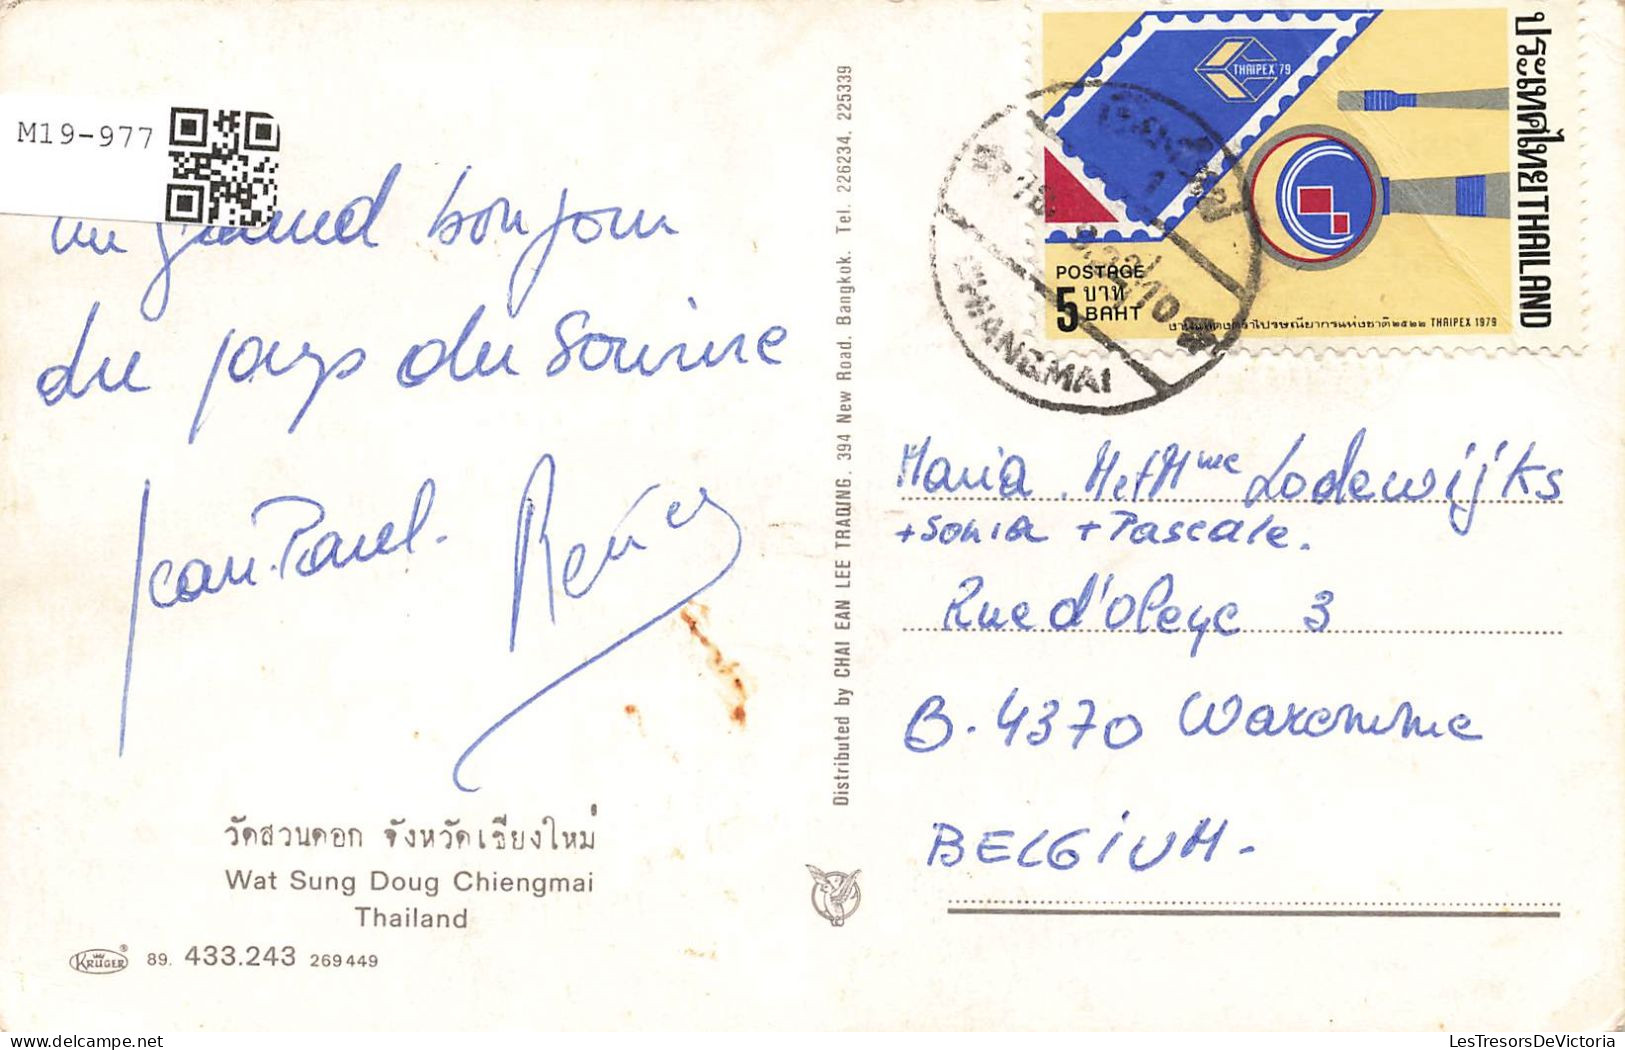 M19-977
un grand bonjour
du pays du Sourire
Jean-Paul.
วัดสวนดอก จังหวัดเชียงใหม่
Wat Sung Doug Chiengmai
Thailand
KRÜGER® 89. 433.243 269449
Distributed by CHAI EAN LEE TRADING. 394 New Road. Bangkok. Tel. 226234. 225339
THAIPEX'79
ประเทศไทย THAILAND
POSTAGE
5 บาท
BAHT
งานแสดงตราไปรษณียากรแห่งชาติ๒๕๒๒ THAIPEX 1979
CHIANGMAI
Maria. M et Mme Lodewijks
+ Sonia + Pascale.
Rue d'Oleye 3
B. 4370 Waremme
BELGIUM-
LesTresorsDeVictoria